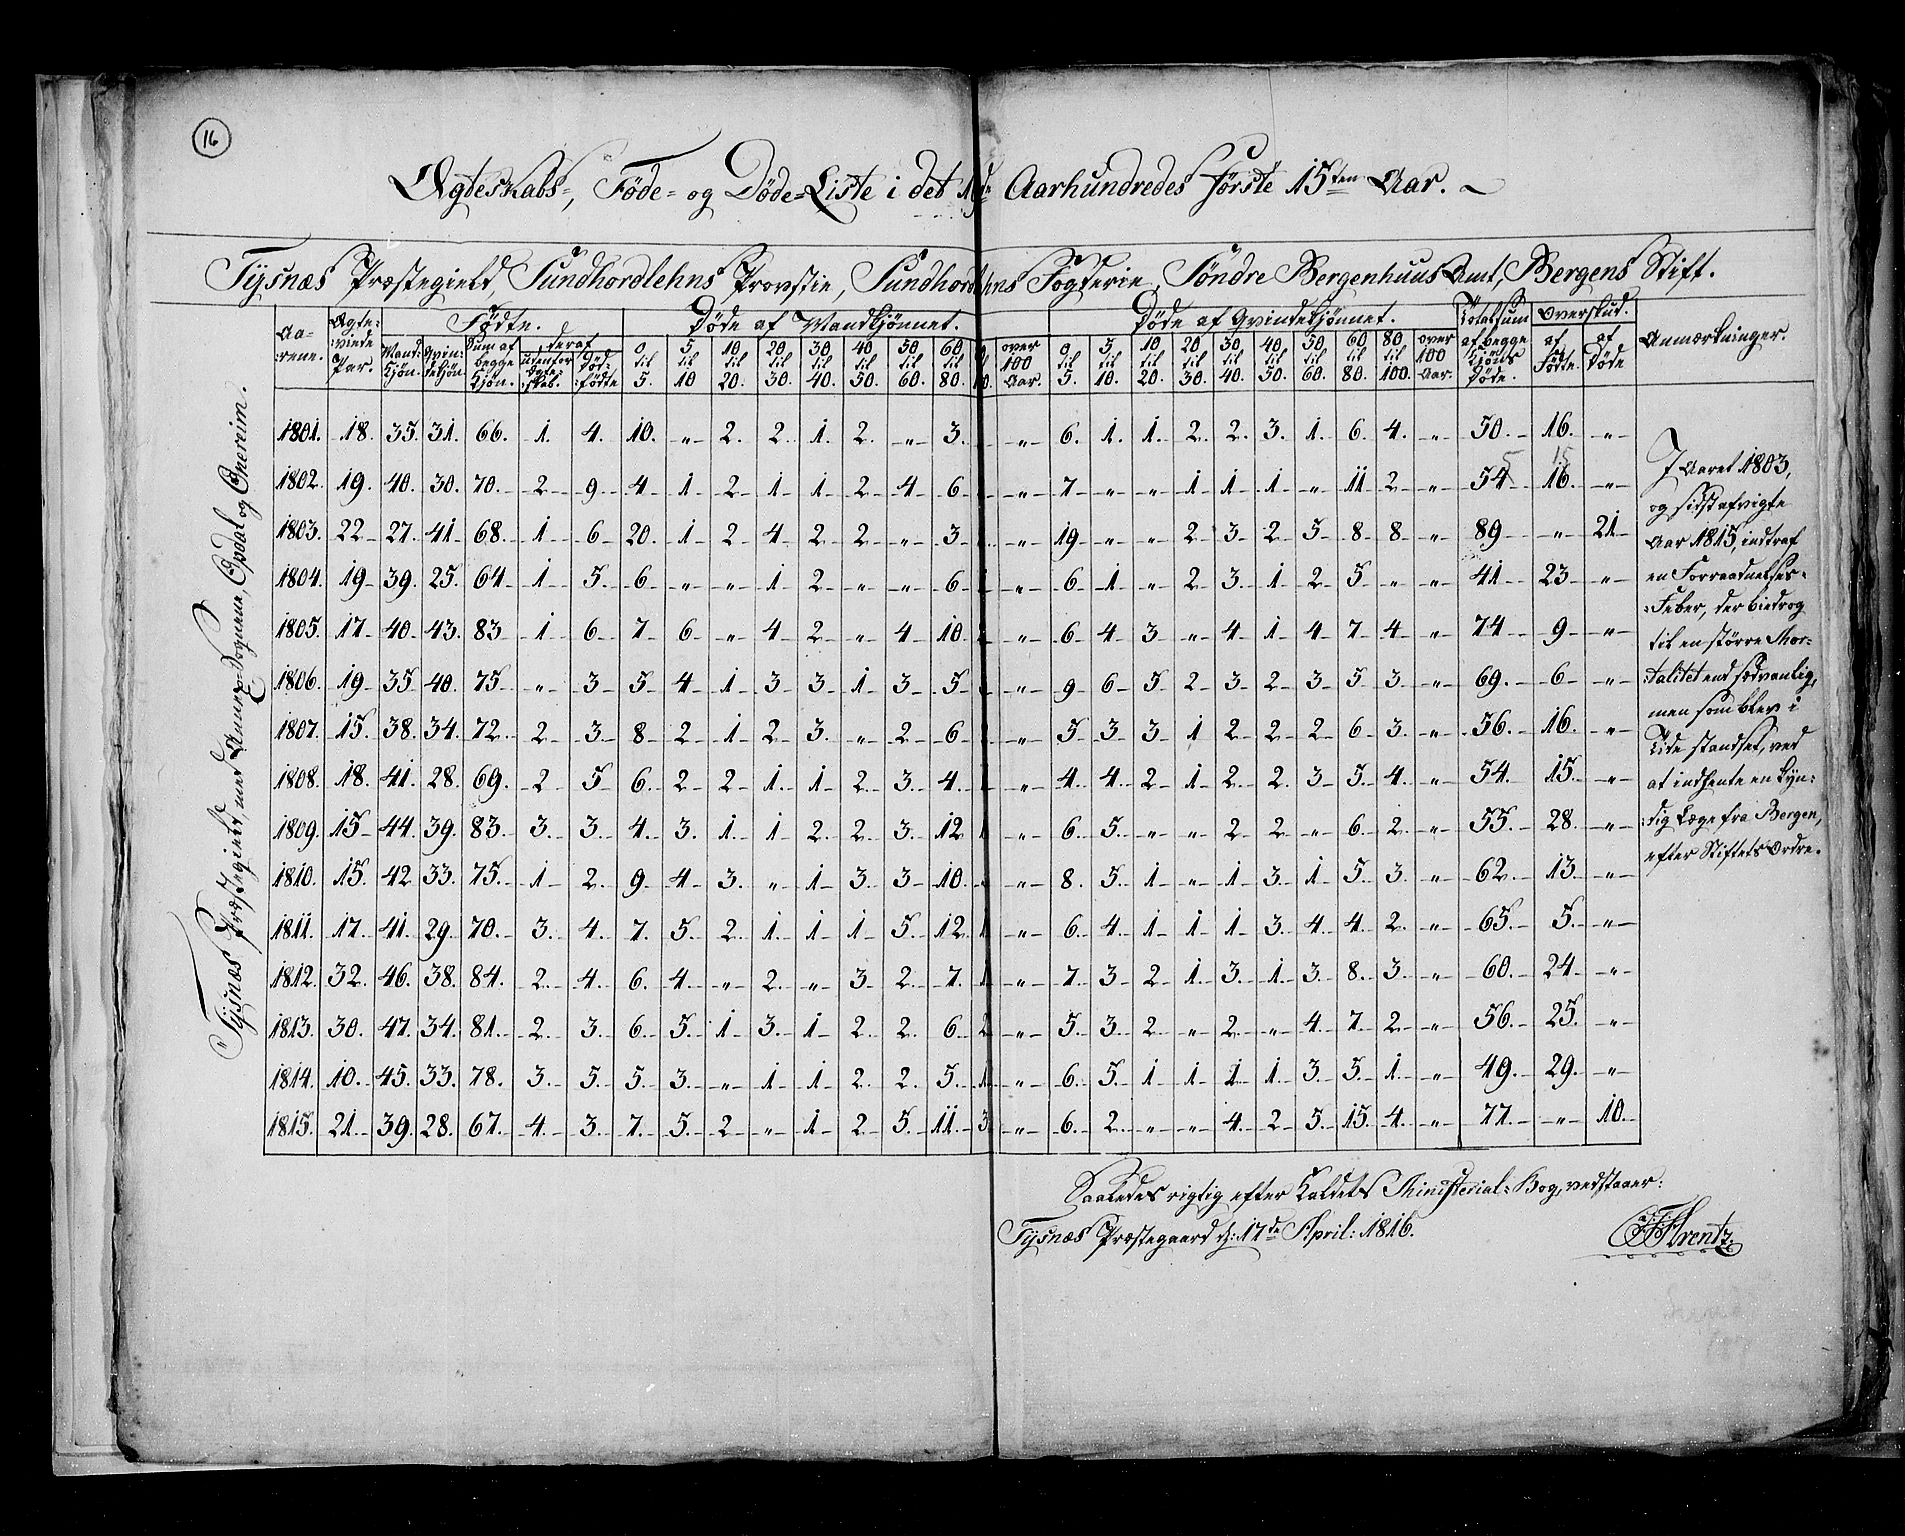 16
Ægteskabs-, Føde- og Døde-Liste i det Aarhundredes første 15ten Aar.
Tysnæs Præstegield, Sundhordlehns Provstie, Sundhordlehns Fogderie, Söndre Bergenhuus Amt, Bergens Stift.
Aa-rene. Ægte-viede Par. Födte. Döde af Mandkjönnet. Döde af Qvindekjönnet. Totalsum af begge Kjöns Döde. Overskud. Anmærkninger.
Mandkjön. Qvindekjön. Sum af begge Kjön. deraf udenfor Ægteskab. Dödfödte 0 til 5. 5 til 10 10 til 20. 20 til 30. 30 til 40. 40 til 50. 50 til 60. 60 til 80. over 100 Aar. 0 til 5. 5 til 10. 10 til 20. 20 til 30. 30 til 40. 40 til 50. 50 til 60. 60 til 80. 80 til 100. over 100 Aar. af Födte. af Döde
Tysnæs Præstegield, med Annex-Sognene, Opdal og Onereim.
1801. 18. 35. 31. 66. 1. 4. 10. " 2. 2. 1. 2. " 3. " 6. 1. 1. 2. 2. 3. 1. 6. 4. " 50. 16. "
1802. 19. 40. 30. 70. 2 9. 4 1 2 1 1 2 4 6 " 7 " " 1 1 1 " 11 2 " 54 5 16. 15 "
1803. 22 27. 41 68. 1 6 20. 1 2 4 2 2 " 3 " 19 " " 2 3 2 5 8 8 " 89 " 21
1804. 19 39. 25. 64 1 5. 6 " " 1 2 " " 6 " 6 1 " 2 3 1 2 5 " " 41 23 "
1805. 17 40. 43. 83 1 6 7 6 " 4 2 " 4 10 " 6 4 3 " 4 1 4 7 4 " 74 9 "
1806. 19 35 40. 75 " 3 5 4 1 3 3 1 3 5 " 9 6 5 2 3 2 3 5 3 " 69. 6 "
1807. 15. 38. 34. 72. 2 3 8 2 1 2 3. " 2 6 " 5 3 3 1 2 2 2 6 3. " 56. 16. "
1808. 18. 41. 28. 69. 2 5 6. 2 2 1. 1 2 3. 4. 1 " 4 4. 2 1 2. 2. 3 5. 4. " 54. 15. "
1809. 15 44. 39. 83. 3. 3. 4. 3. 1 1 2. 2 3. 12 " 6. 5. " " 2 2 " 6. 2. " 55. 28. "
1810. 15. 42 33. 75. 1 2. 9. 4 3. " 1 3. 3 10. " 8. 5. 1 " 1 3. 1 5. 3. " 62. 13. "
1811. 17. 41. 29. 70. 3. 4. 7. 5. 2. 1. 1 1 5. 12. 1 " 6. 4. 1 1 1 3. 4 4. 2. " 65. 5. "
1812. 32. 46. 38. 84. 2. 4. 6. 4. " 2. " 3 2. 7. 1 " 7. 3. 2 1. 3. 1. 3. 8. 3. " 60. 24 "
1813. 30. 47. 34. 81. 2. 3. 6. 5. 1 3. 1 2. 2. 6. 2 " 5. 3. 2 " 2. " 4. 7. 2. " 56. 25. "
1814. 10. 45. 33. 78. 3. 5. 5. 3. " 1 1 2. 2. 5. 1 " 6. 5. 1 1 1 1 3. 5. 1 " 49. 29. "
1815. 21. 39. 28. 67. 4. 3. 7. 5. 2 " 1 2 5. 11. 3 " 6. 2. " " 4. 2 5. 15. 4. " 77. " 10.
I Aaret 1803,
og sidst afvigte
Aar 1815, indtraf
en Forraadnelses-
Feber, der bidrog
til en större Mor-
talitet end sædvanlig,
men som blev i
Tide standset, ved
at indhente en kyn-
dig Læge fra Bergen,
efter Stiftets Ordre.
Saaledes rigtig efter Kaldets Ministerial-Bog, vedstaaer:
Tysnæs Præstegaard d: 17de April: 1816.